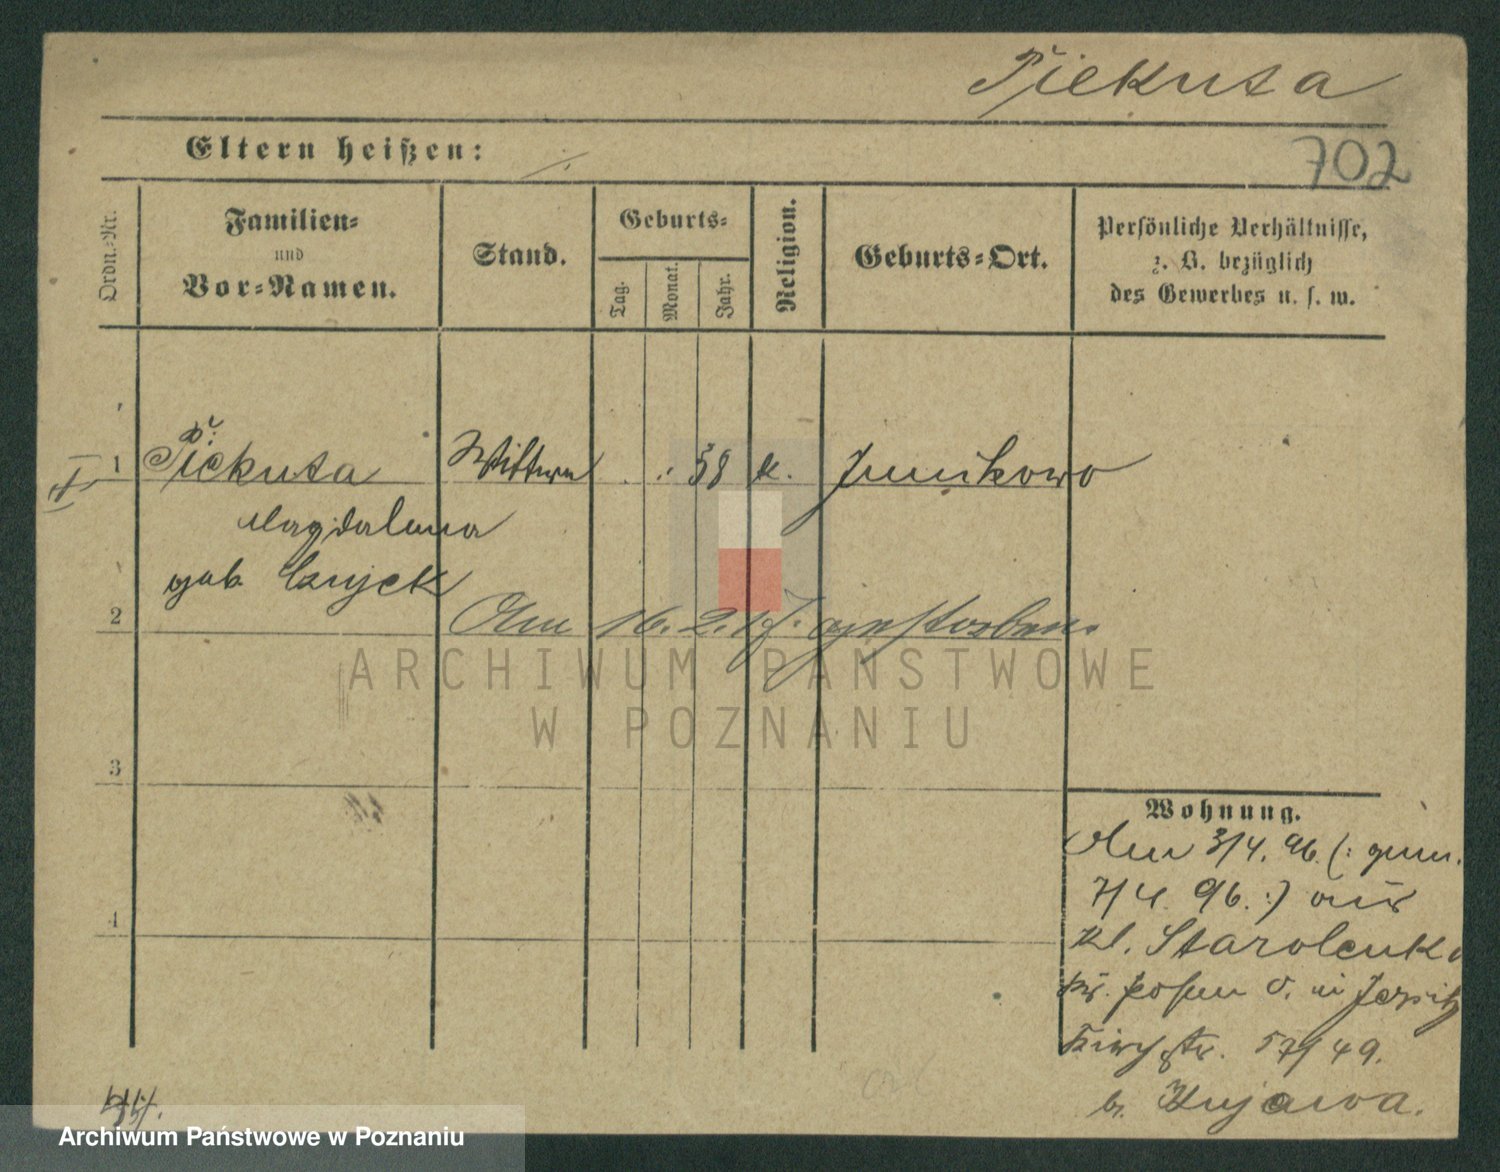 Piekuta
702
Eltern heißen:
Ordn.-Nr.
Familien-
und
Vor-Namen.
Stand.
Geburts-
Tag.
Monat.
Jahr.
Religion.
Geburts-Ort.
Persönliche Verhältnisse,
z. B. bezüglich
des Gewerbes u. s. w.
1 Piekuta Wittwe 58 k. Junikowo
Magdalena
geb.
2 Am 16. 2. 17. gestorben.
ARCHIWUM PAŃSTWOWE
W POZNANIU
3
Wohnung.
Am 3/4. 96. (: gem.
4 7/4. 96. :) aus
Kl. Starolenka
Kr. Posen O. in Jersitz
Kirchstr. 57/49.
b. Kujawa.
Archiwum Państwowe w Poznaniu